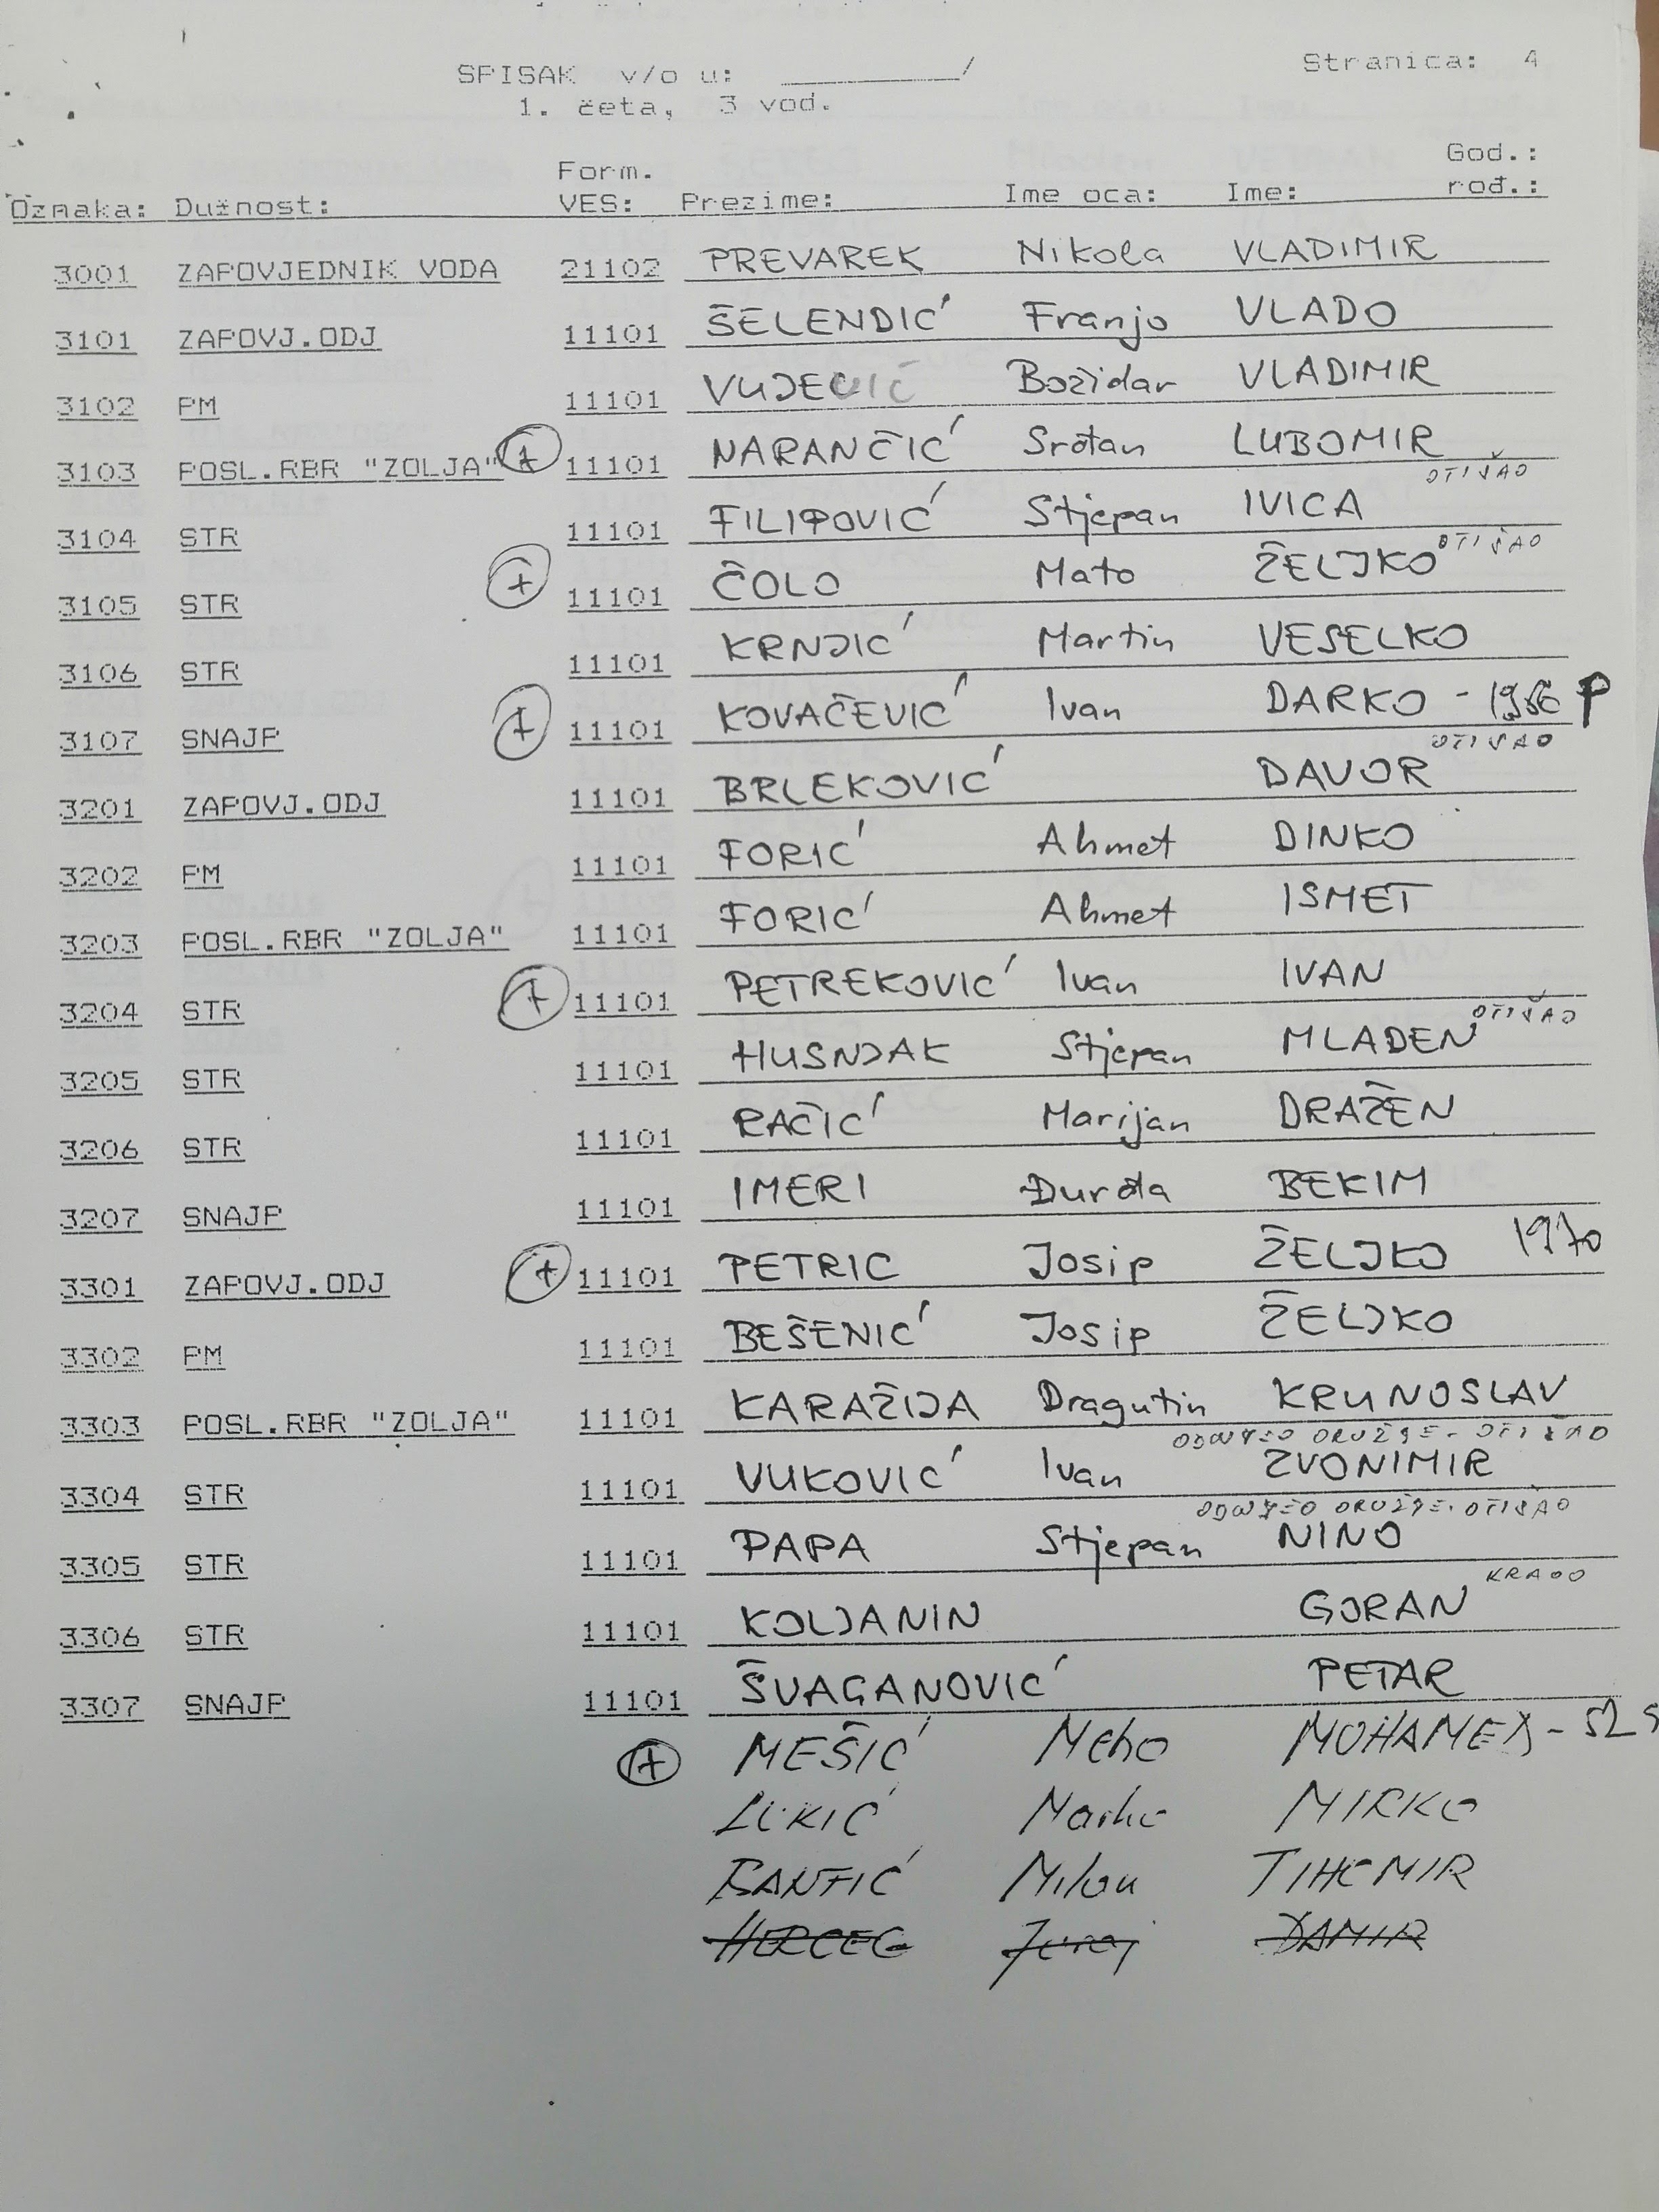 SPISAK v/o u: __________/ Stranica: 4
1. četa, 3 vod.
Form. God.:
Oznaka: Dužnost: VES: Prezime: Ime oca: Ime: rođ.:
3001 ZAPOVJEDNIK VODA 21102 PREVAREK Nikola VLADIMIR
3101 ZAPOVJ.ODJ 11101 ŠELENDIĆ Franjo VLADO
3102 PM 11101 VUJEVIĆ Božidar VLADIMIR
3103 POSL.RBR "ZOLJA" + 11101 NARANČIĆ Srđan LUBOMIR
OTIŠAO
3104 STR 11101 FILIPOVIĆ Stjepan IVICA
OTIŠAO
3105 STR + 11101 ČOLO Mato ŽELJKO
3106 STR 11101 KRNJIĆ Martin VESELKO
3107 SNAJP + 11101 KOVAČEVIĆ Ivan DARKO - P
OTIŠAO
3201 ZAPOVJ.ODJ 11101 BRLEKOVIĆ DAVOR
3202 PM 11101 FORIĆ Ahmet DINKO
3203 POSL.RBR "ZOLJA" 11101 FORIĆ Ahmet ISMET
3204 STR + 11101 PETREKOVIĆ Ivan IVAN
OTIŠAO
3205 STR 11101 HUSNJAK Stjepan MLADEN
3206 STR 11101 RAČIĆ Marijan DRAŽEN
3207 SNAJP 11101 IMERI Đurđa BEKIM
3301 ZAPOVJ.ODJ + 11101 PETRIC Josip ŽELJKO 1970
3302 PM 11101 BEŠENIĆ Josip ŽELJKO
3303 POSL.RBR "ZOLJA" 11101 KARAŽIJA Dragutin KRUNOSLAV
ODNJEO ORUŽJE - OTIŠAO
3304 STR 11101 VUKOVIĆ Ivan ZVONIMIR
ODNJEO ORUŽJE. OTIŠAO
3305 STR 11101 PAPA Stjepan NINO
KRAO
3306 STR 11101 KOLJANIN GORAN
3307 SNAJP 11101 ŠVAGANOVIĆ PETAR
+ MEŠIĆ Meho MUHAMED -
LUKIĆ Marko MIRKO
Milan TIHOMIR
HERCEG Juraj DAMIR